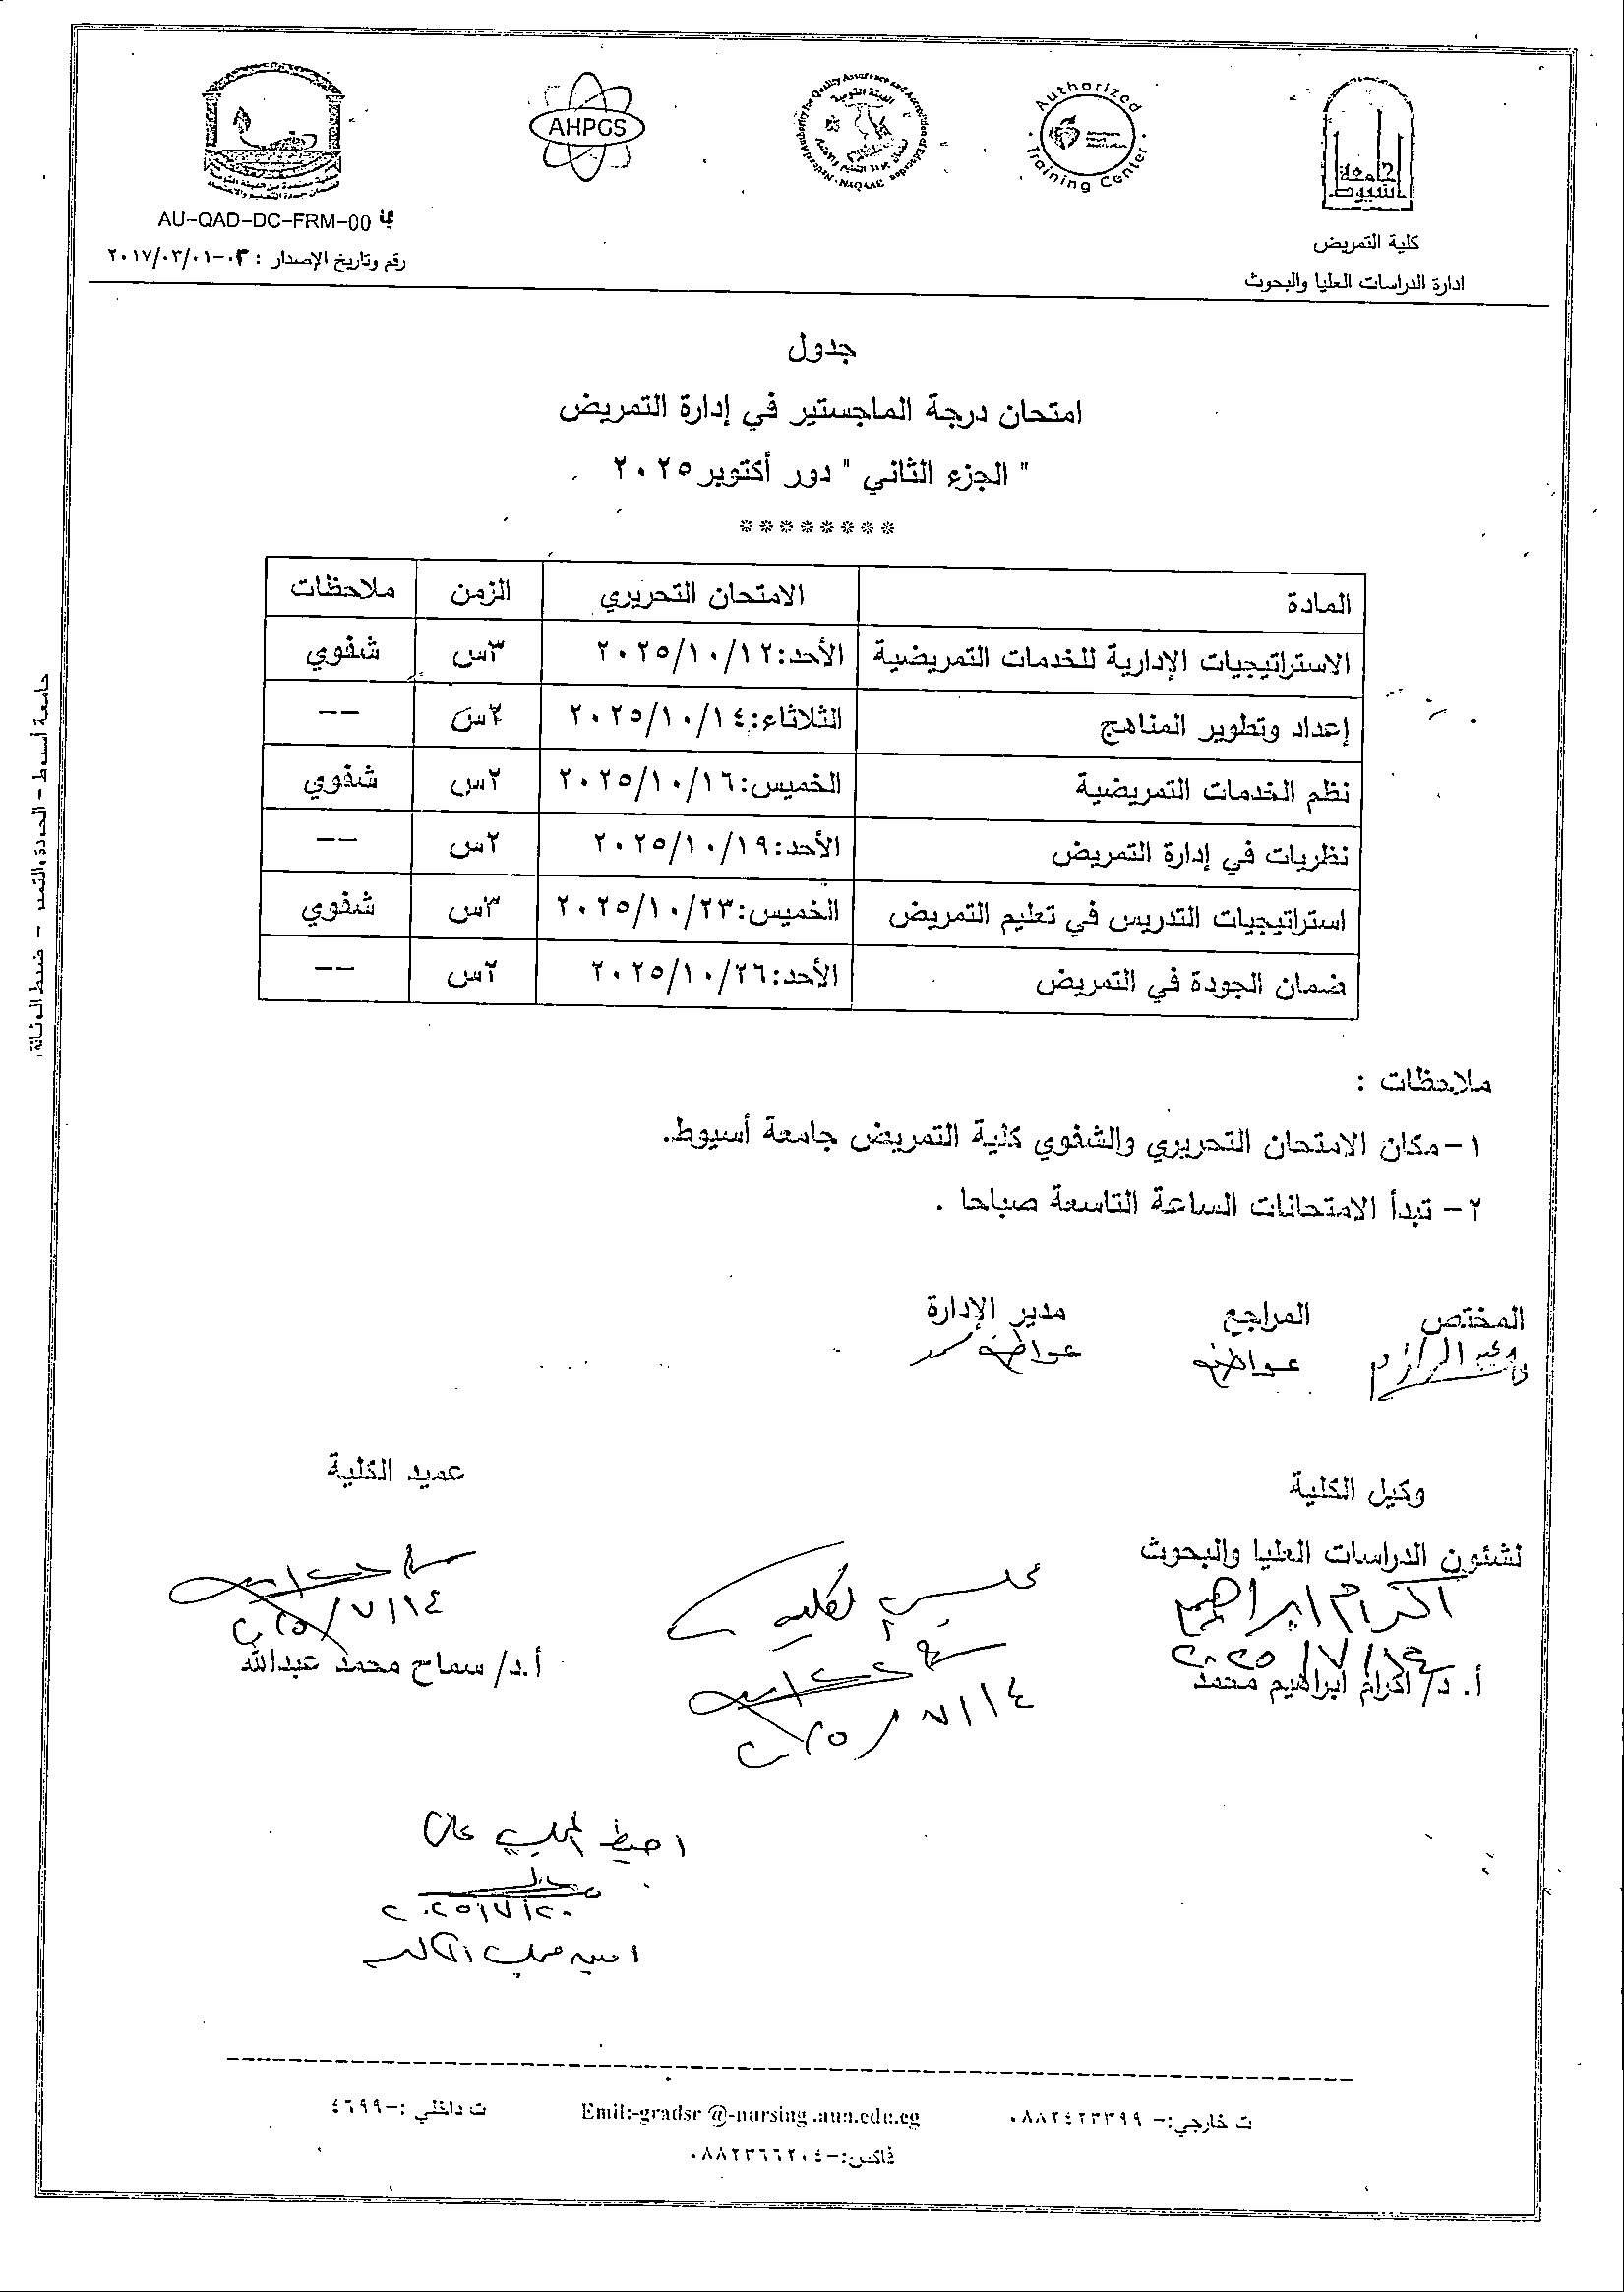 AHPGS
National Authority for Quality Assurance and Accreditation of Education - NAQAAE
Authorized Training Center
جامعة أسيوط
AU-QAD-DC-FRM-00
كلية التمريض
رقم وتاريخ الإصدار : ٠٣-٢٠١٧/٠٣/٠١
ادارة الدراسات العليا والبحوث
جدول
امتحان درجة الماجستير في إدارة التمريض
" الجزء الثاني " دور أكتوبر ٢٠٢٥
********
المادة الامتحان التحريري الزمن ملاحظات
الاستراتيجيات الإدارية للخدمات التمريضية الأحد:٢٠٢٥/١٠/١٢ ٣س شفوي
إعداد وتطوير المناهج الثلاثاء:٢٠٢٥/١٠/١٤ ٢س --
نظم الخدمات التمريضية الخميس:٢٠٢٥/١٠/١٦ ٢س شفوي
نظريات في إدارة التمريض الأحد:٢٠٢٥/١٠/١٩ ٢س --
استراتيجيات التدريس في تعليم التمريض الخميس:٢٠٢٥/١٠/٢٣ ٣س شفوي
ضمان الجودة في التمريض الأحد:٢٠٢٥/١٠/٢٦ ٢س --
ملاحظات :
١- مكان الامتحان التحريري والشفوي كلية التمريض جامعة أسيوط.
٢- تبدأ الامتحانات الساعة التاسعة صباحا .
المختص المراجع مدير الإدارة
وكيل الكلية عميد الكلية
لشئون الدراسات العليا والبحوث
اكرام ابراهيم
٢٠٢٥/٧/١٤
مجلس الكلية
أ.د/ اكرام ابراهيم محمد أ.د/ سماح محمد عبدالله
احيط المجلس علما
٢٠٢٥/٧/٢٠
امين مجلس الكلية
ت خارجي:- ٠٨٨٢٤٢٣٣٩٩ Emil:-gradsr @-nursing .aun.edu.eg ت داخلي :-٤٦٩٩
فاكس:-٠٨٨٢٣٦٦٢٠٤